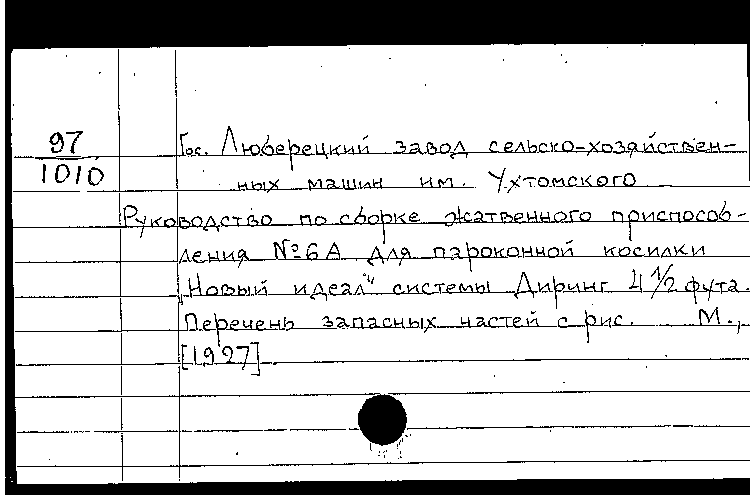 97
1010
Гос. Люберецкий завод сельско-хозяйствен-
ных машин им. Ухтомского
Руководство по сборке жатвенного приспособ-
ления №6А для пароконной косилки
„Новый идеал" системы Диринг 4 1/2 фута.
Перечень запасных частей с рис. М.,
[1927]